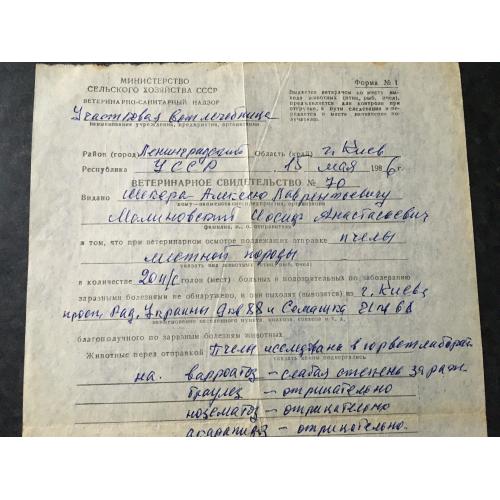 МИНИСТЕРСТВО
СЕЛЬСКОГО ХОЗЯЙСТВА СССР
ВЕТЕРИНАРНО-САНИТАРНЫЙ НАДЗОР
Форма № 1
Выдается ветврачом по месту вывода животных (птиц, рыб, пчел), предъявляется для контроля при отгрузке, в пути следования и передается в месте назначения получателю.
Участковая ветлечебница
наименование учреждения, предприятия, организации
Район (город) Ленинградский Область (край) г. Киев
Республика УССР 15 мая 1986 г.
ВЕТЕРИНАРНОЕ СВИДЕТЕЛЬСТВО № 70
Выдано Шквора Алексею Лаврентьевичу
кому—наименование предприятия, организации
Малиновский Иосиф Анастасович
фамилия, и., о. отправителя
в том, что при ветеринарном осмотре подлежащих отправке пчелы
местной породы
указать вид животных (птиц, рыб, пчел)
в количестве 20 п/с голов (мест) больных и подозрительных по заболеванию
заразными болезнями не обнаружено, и они выходят (вывозятся) из г. Киева
просп. Рад. Украины 88 и Семашка 21
наименование населенного пункта
благополучного по заразным болезням животных
Животные перед отправкой Пчелы исследована в горветлаборат.
на варроатоз – слабая степень зараж.
браулез – отрицательно
нозематоз – отрицательно
акарапидоз – отрицательно.